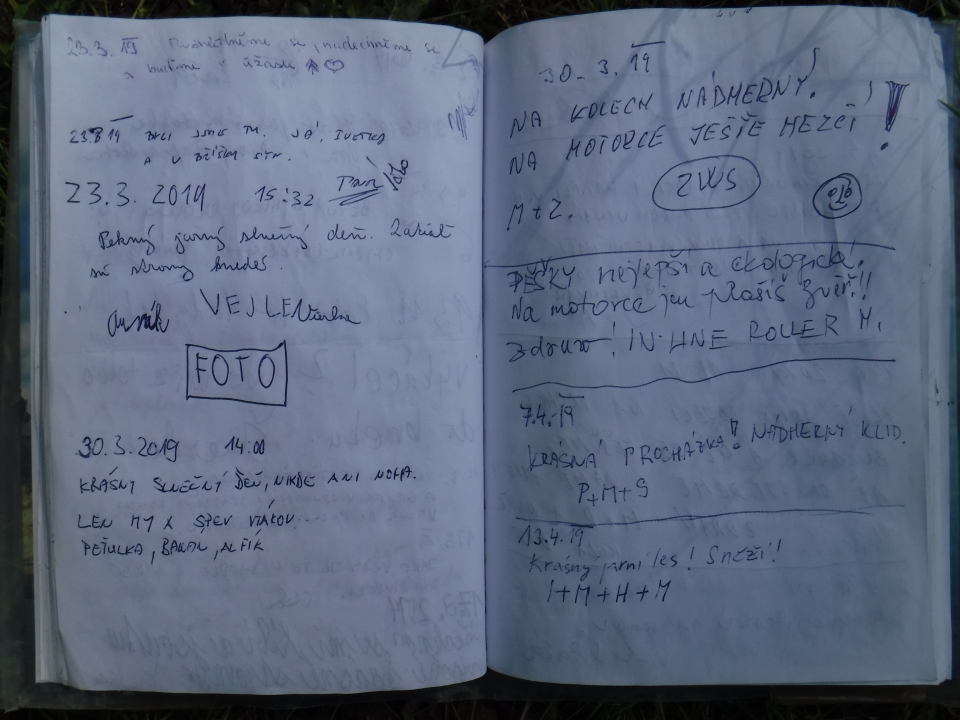 23.3.19 se, nadechněme se
a buďme v úžasu
23.3.19 BYLI JSME TU. JÁ,
A U
23.3.2019 15:32
Pekný jarný slnečný deň. Zatiaľ
sú stromy hnedé.
VEJLE
FOTO
30.3.2019 14:00
KRÁSNY SLNEČNÝ DEŇ, NIKDE ANI NOHA.
LEN MY A SPEV VTÁKOV...
PEŤULKA, ALFÍK
30.3.19
NA KOLECH NÁDHERNÝ!
NA MOTORCE JEŠTĚ HEZČÍ!
ZWS
M+Z.
PĚŠKY nejlepší a ekologické!
Na motorce jen plašíš zvěř!!
Zdraví! IN-LINE ROLLER M.
7.4.19
KRÁSNÁ PROCHÁZKA! NÁDHERNÝ KLID.
P+M+S
13.4.19
Krásný jarní les! Sněží!
I+M+H+M